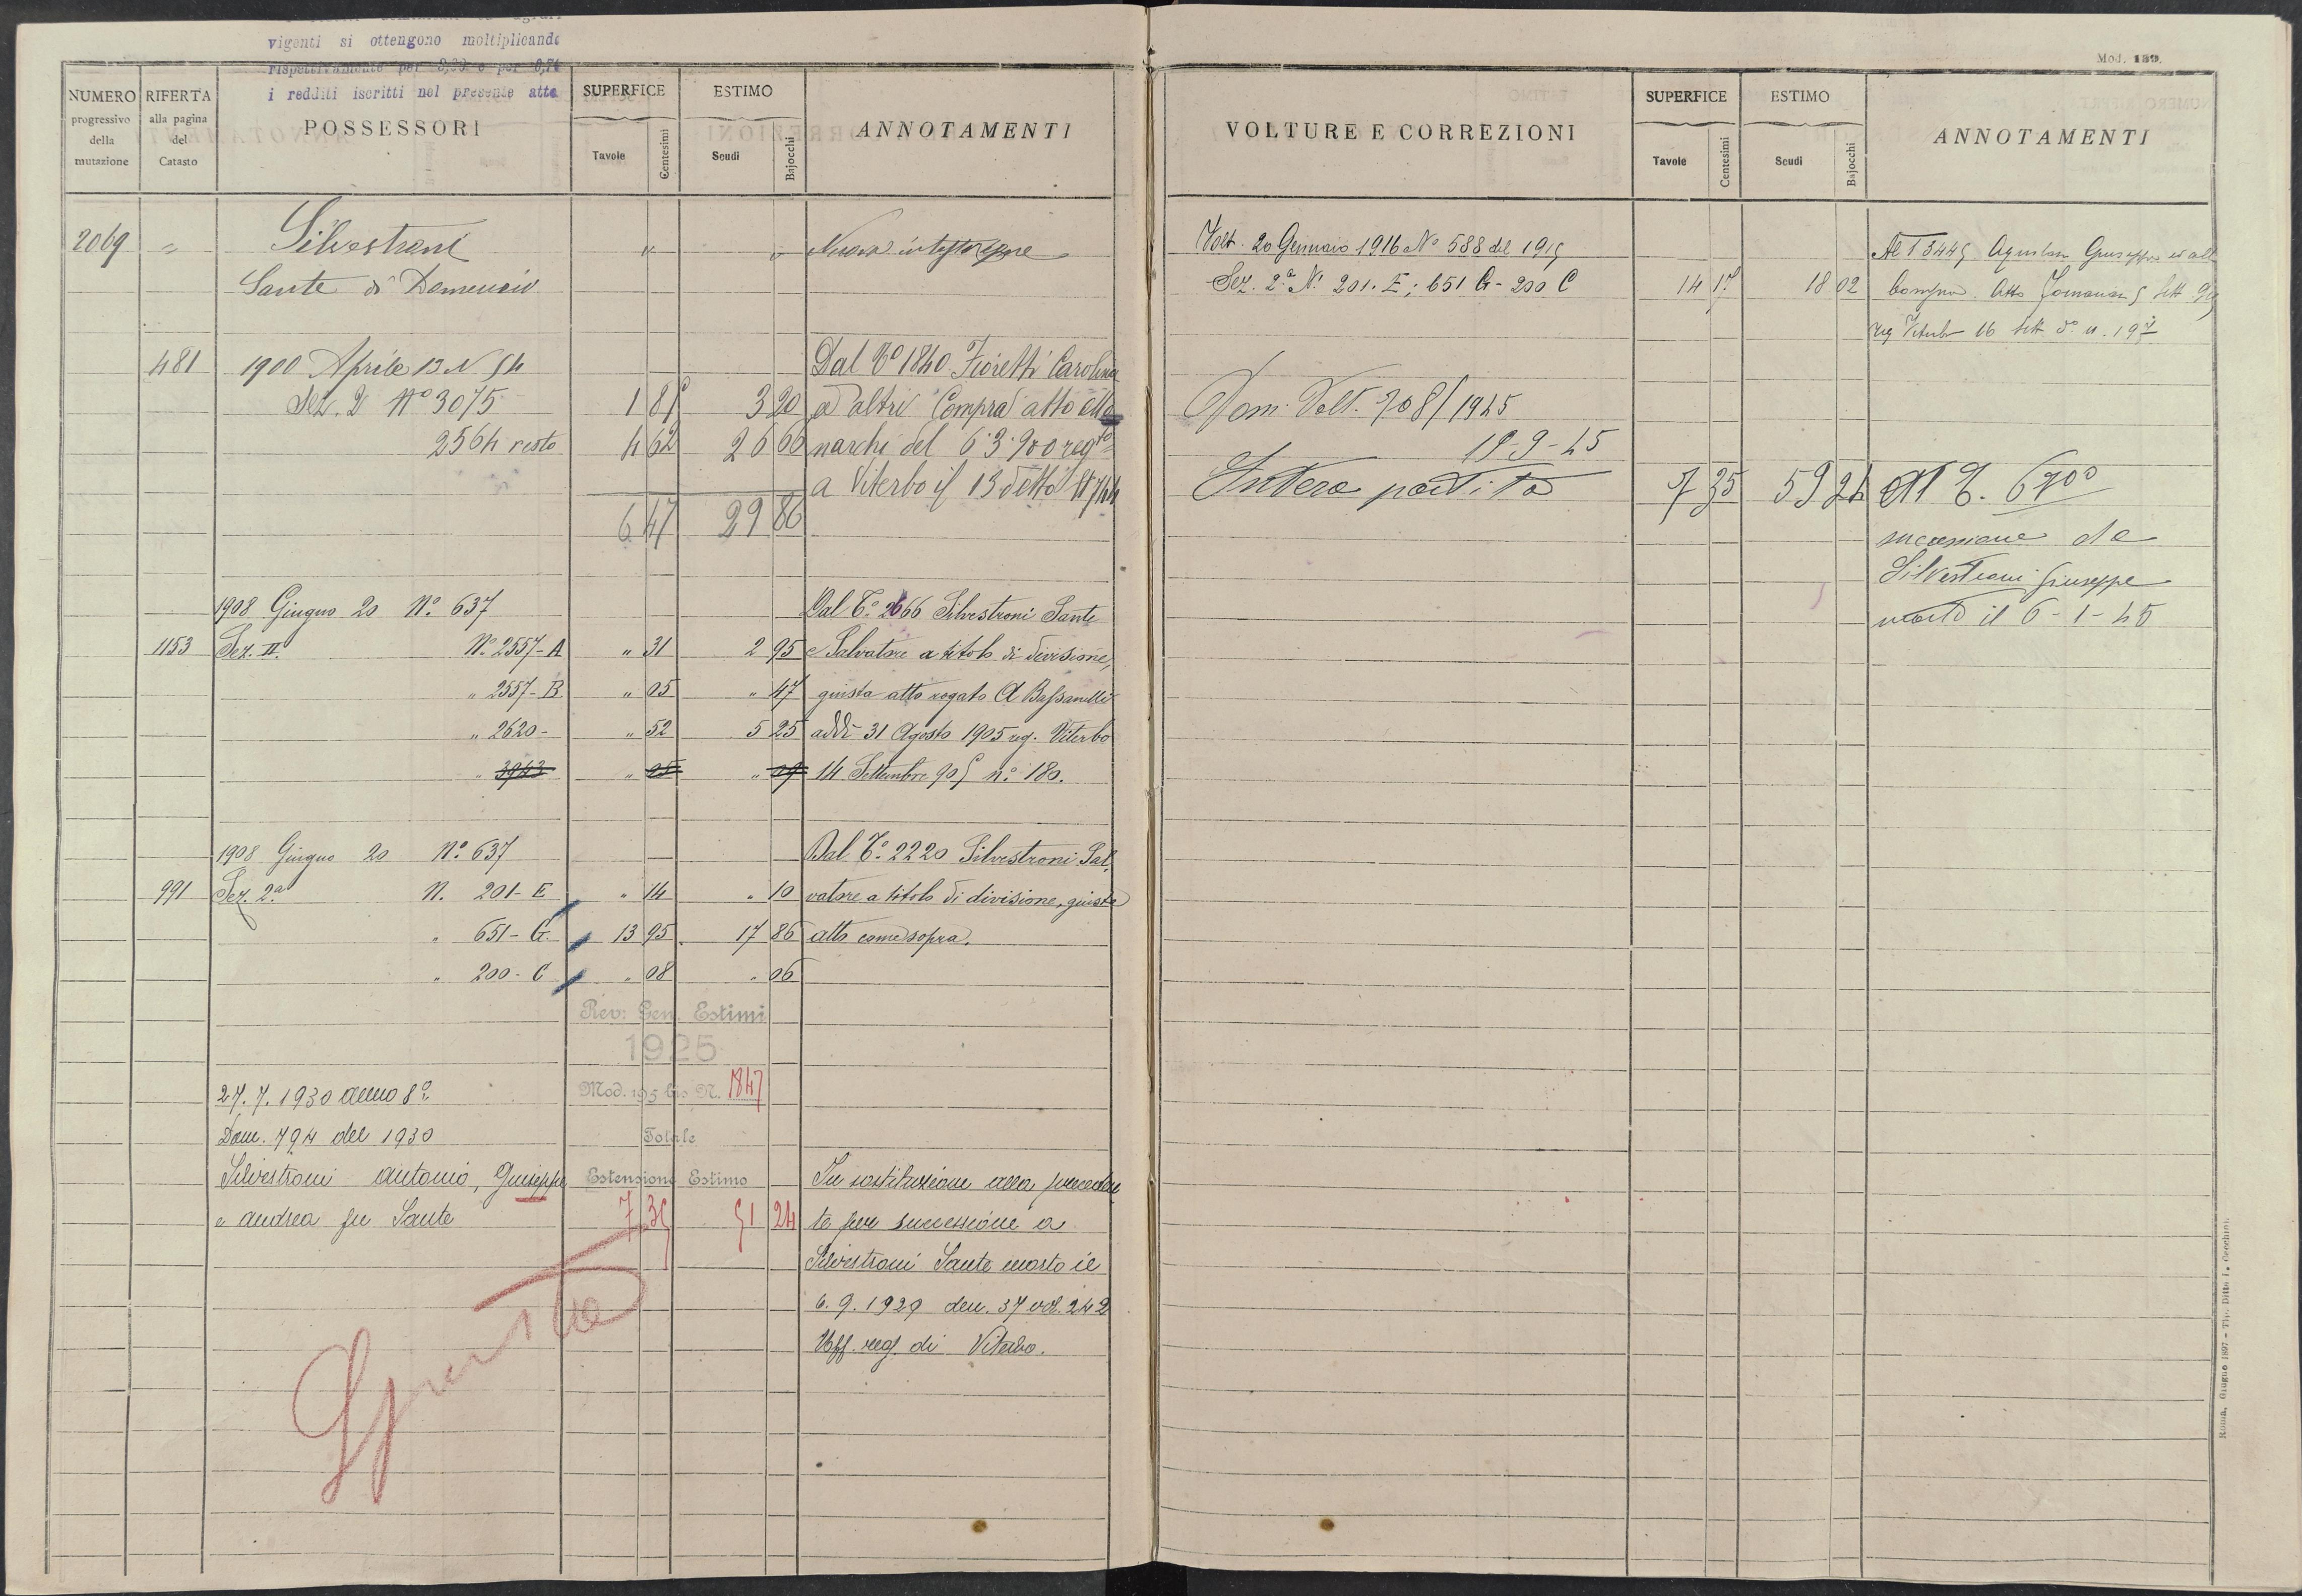 vigenti si ottengono moltiplicando
rispettivamente per
i redditi iscritti nel presente atto
NUMERO progressivo della mutazione
RIFERTA alla pagina del Catasto
POSSESSORI
SUPERFICE
Tavole Centesimi
ESTIMO
Scudi Bajocchi
ANNOTAMENTI
2069 Silvestroni Nuova intestazione
Sante di Domenico
481 1900 Aprile 13 N 54 Dal To 1840 Fioretti Carolina
Sez. 2 No 3075 1 85 3 20 ed altri Compra atto
2564 resto 4 62 26 66 narchi del 6.3.900 regto
a Viterbo il 13 detto
6 47 29 86
1908 Giugno 20 No. 637 Dal To. 2666 Silvestroni Sante
1153 Sez. II. No. 2557-A " 31 2 95 e Salvatore a titolo di divisione,
" 2557-B " 05 " 47 giusta atto rogato A Bassanelli
" 2620- " 52 5 25 addì 31 Agosto 1905 reg. Viterbo
" 3943 " 05 " 09 14 Settembre 905 no. 180.
1908 Giugno 20 No. 637 Dal To. 2220 Silvestroni Sal
991 Sez. 2a N. 201-E " 14 " 10 vatore a titolo di divisione, giusta
" 651-G 13 95 17 86 atto come sopra.
" 200-C " 08 " 06
Rev: Gen. Estimi
1925
27.7.1930 anno 8o Mod. 195 bis N. 1847
Dom. 794 del 1930 Totale
Silvestroni Antonio, Giuseppe Estensione Estimo In sostituzione alla preceden
e Andrea fu Sante 7 35 51 24 te per successione a
Silvestroni Sante morto il
6.9.1929 den. 37 vol. 242
Uff. reg. di Viterbo.
Mod. 139.
VOLTURE E CORREZIONI
SUPERFICE
Tavole Centesimi
ESTIMO
Scudi Bajocchi
ANNOTAMENTI
Volt. 20 Gennaio 1916 No 588 del 1915 Al T 3445 Giuseppe ed altri
Sez. 2a No. 201.E; 651 G- 200 C 14 17 18 02 Compra Atto 5 Sett 915
reg Viterbo 16 Sett
Dom. Volt. 708/1945
19-9-45
Intera partita 7 35 59 24 Al T. 6700
successione da
Silvestroni Giuseppe
morto il 6-1-45
Roma, Giugno 1897 - Tip. Ditta L. Cecchini.